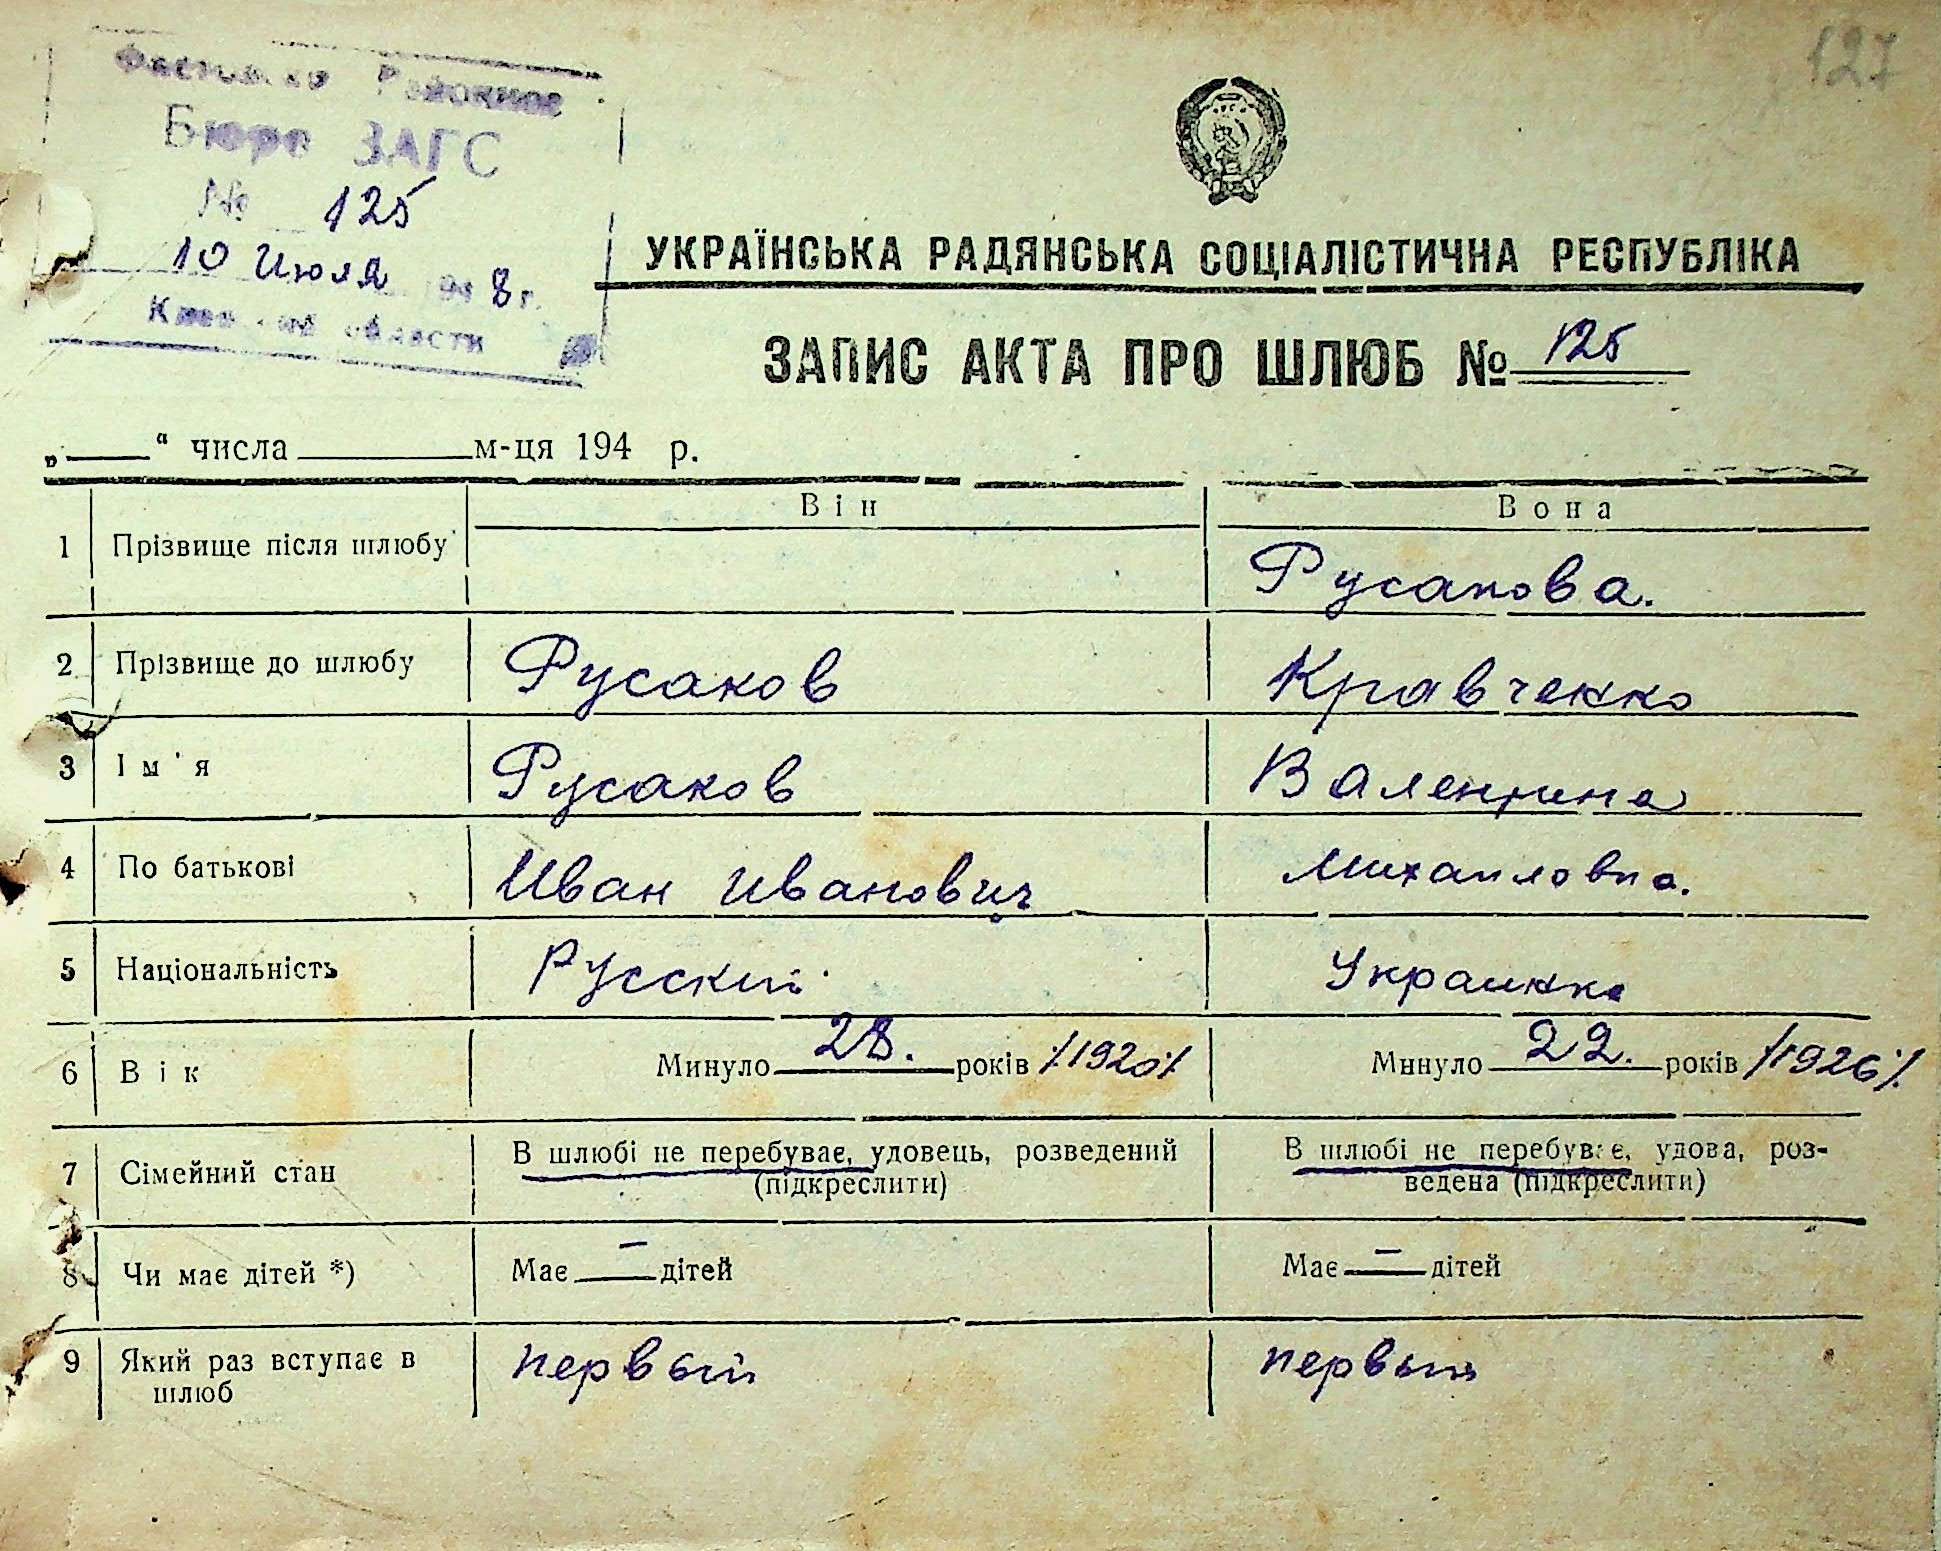 127
Районное
Бюро ЗАГС
№ 125
10 Июля 1948 г.
области
УКРАЇНСЬКА РАДЯНСЬКА СОЦІАЛІСТИЧНА РЕСПУБЛІКА
ЗАПИС АКТА ПРО ШЛЮБ № 125
„ “ числа м-ця 194 р.
Він Вона
1 Прізвище після шлюбу Русакова.
2 Прізвище до шлюбу Русаков Кравченко
3 Ім'я Русаков Валентина
4 По батькові Иван Иванович Михайловна.
5 Національність Русский Украинка
6 Вік Минуло 28. років /1920/ Минуло 22. років /1926/
7 Сімейний стан В шлюбі не перебуває, удовець, розведений В шлюбі не перебуває, удова, роз-
(підкреслити) ведена (підкреслити)
8 Чи має дітей *) Має — дітей Має — дітей
9 Який раз вступає в первый первый
шлюб